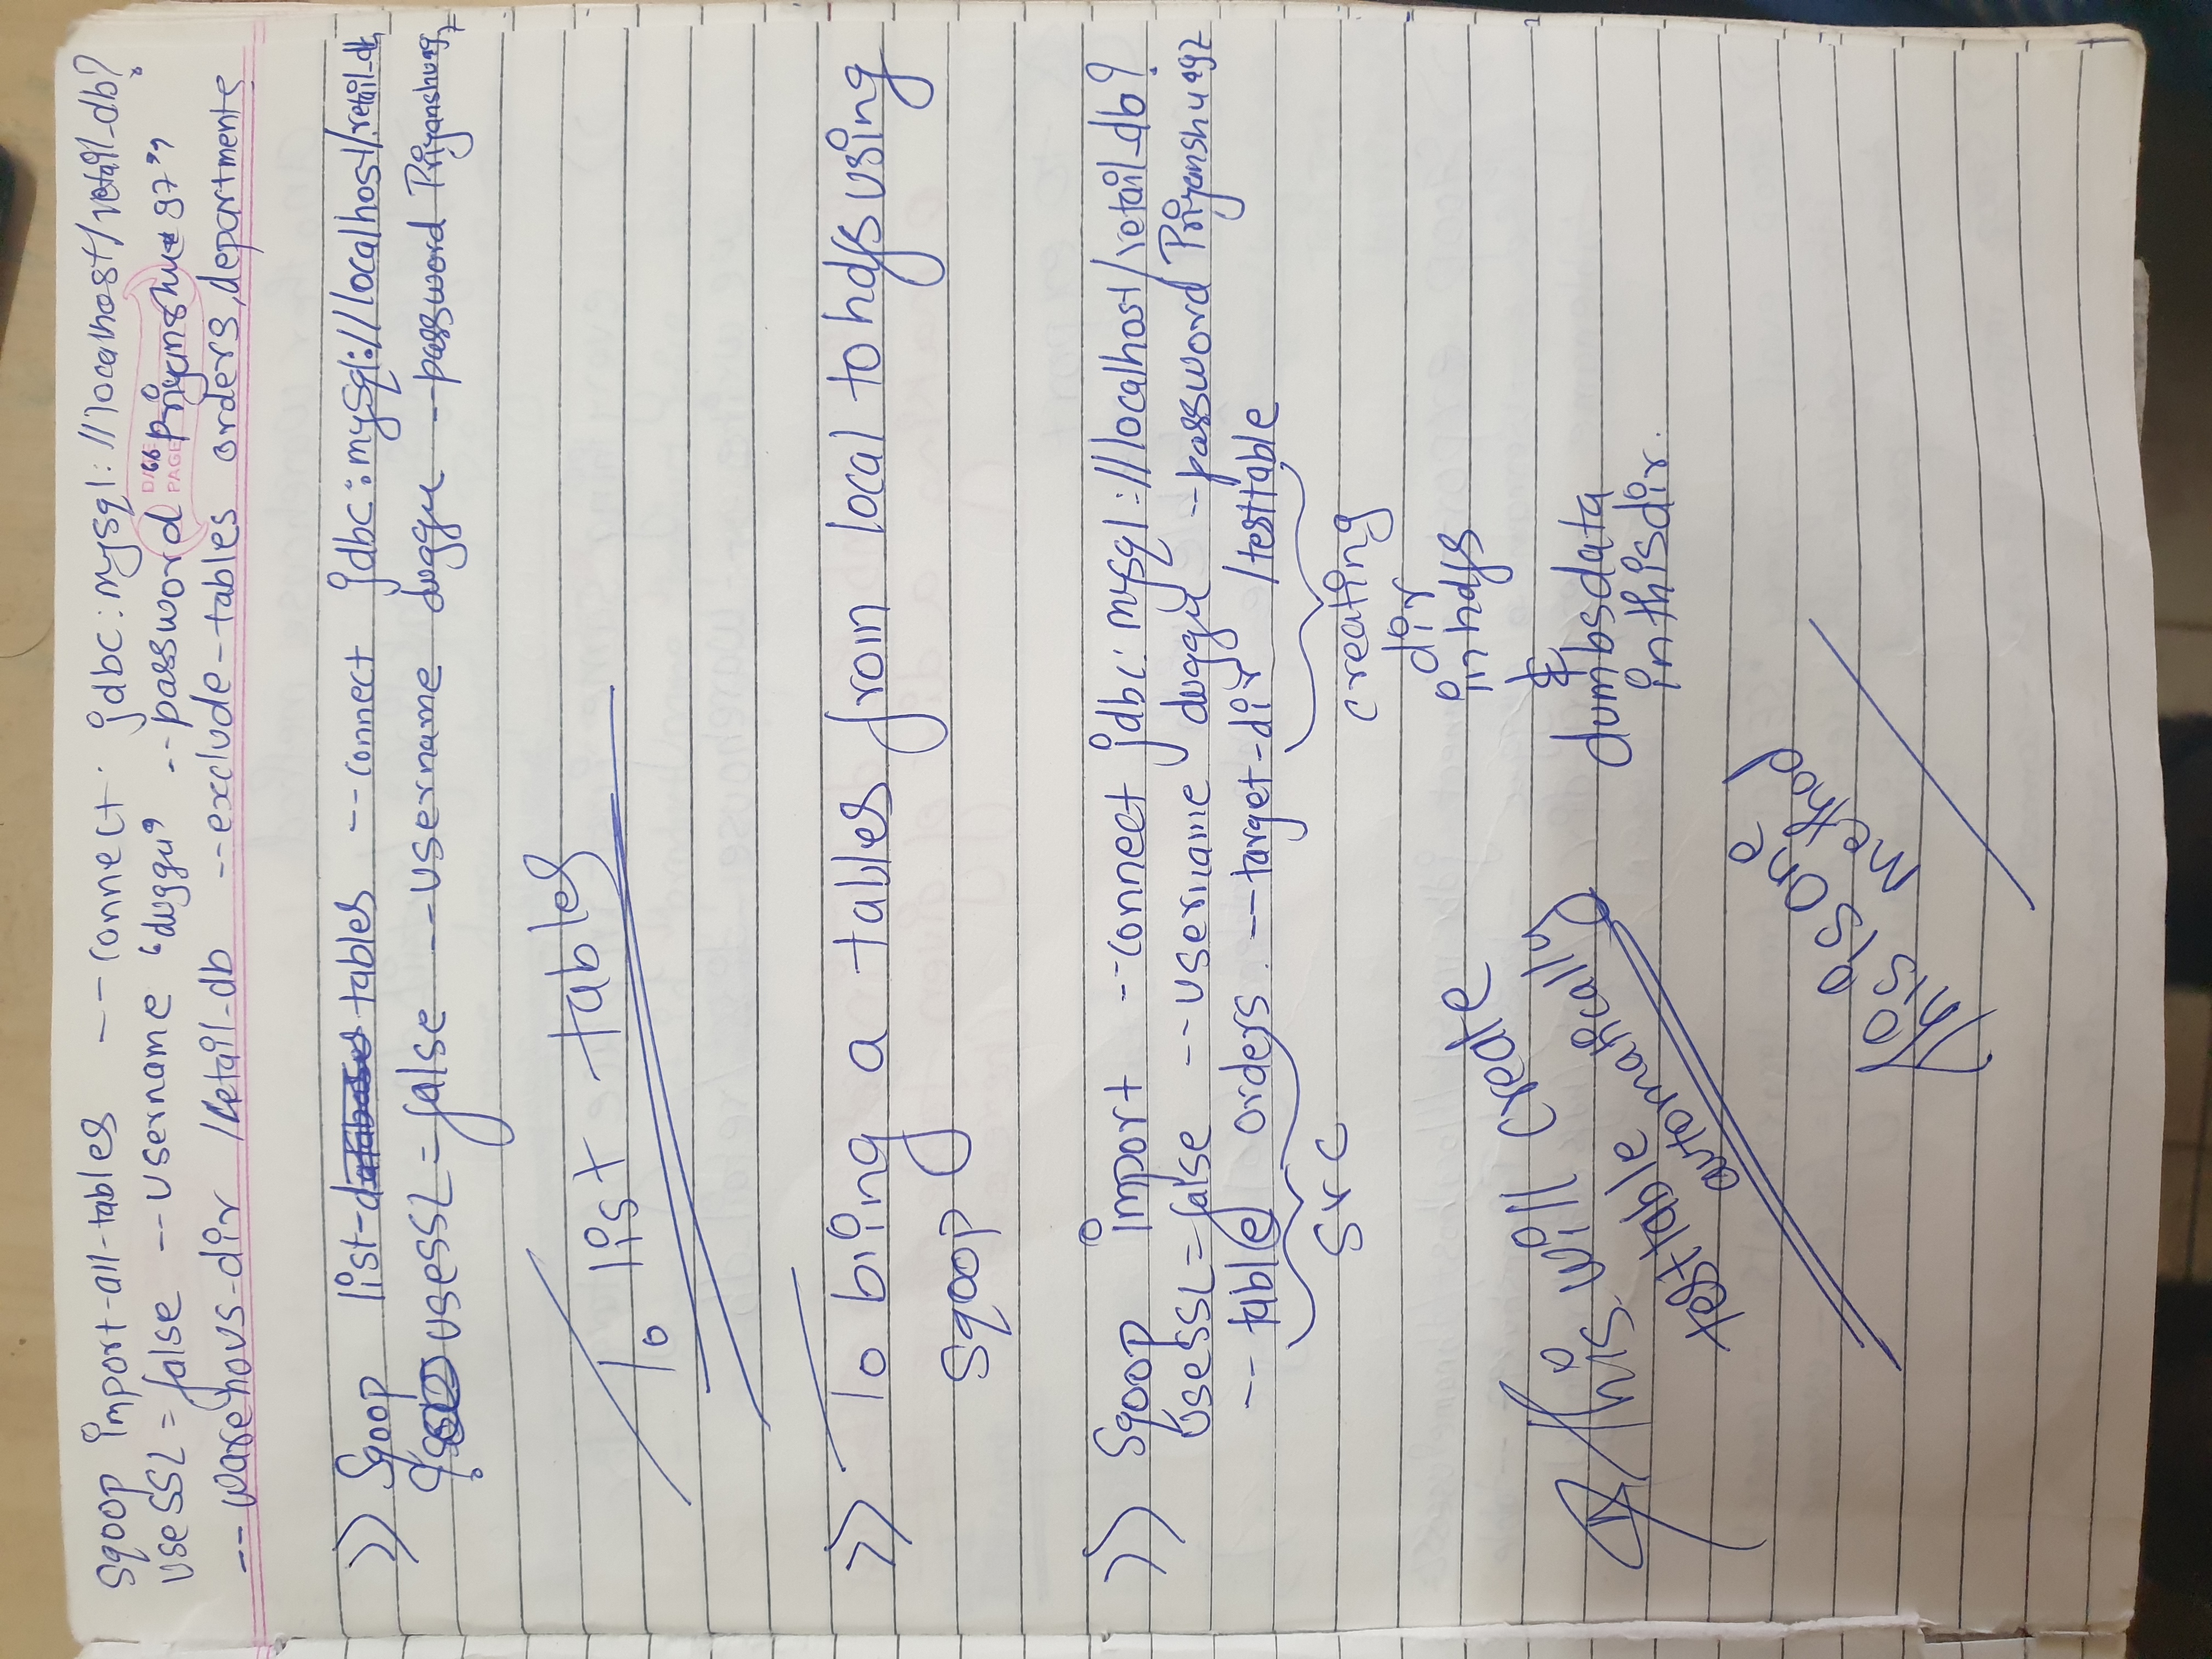 Sqoop import-all-tables --connect jdbc:mysql://localhost/retail_db?
useSSL=false --username "duggu" --password "Priyanshu@97"
DATE
PAGE
--warehous-dir /retail_db --exclude-tables orders,departments
>> Sqoop list-databases tables --connect jdbc:mysql://localhost/retail_db
? useSSL=false --username duggu --password Priyanshu@97
To list tables
>> To bring a tables from local to hdfs using
sqoop
>> Sqoop import --connect jdbc:mysql://localhost/retail_db?
useSSL=false --username duggu --password Priyanshu@97
--table orders --target-dir /testtable
src
creating
dir
in hdfs
&
dumbs data
in this dir.
This will create
testtable
automatically
This is one
method